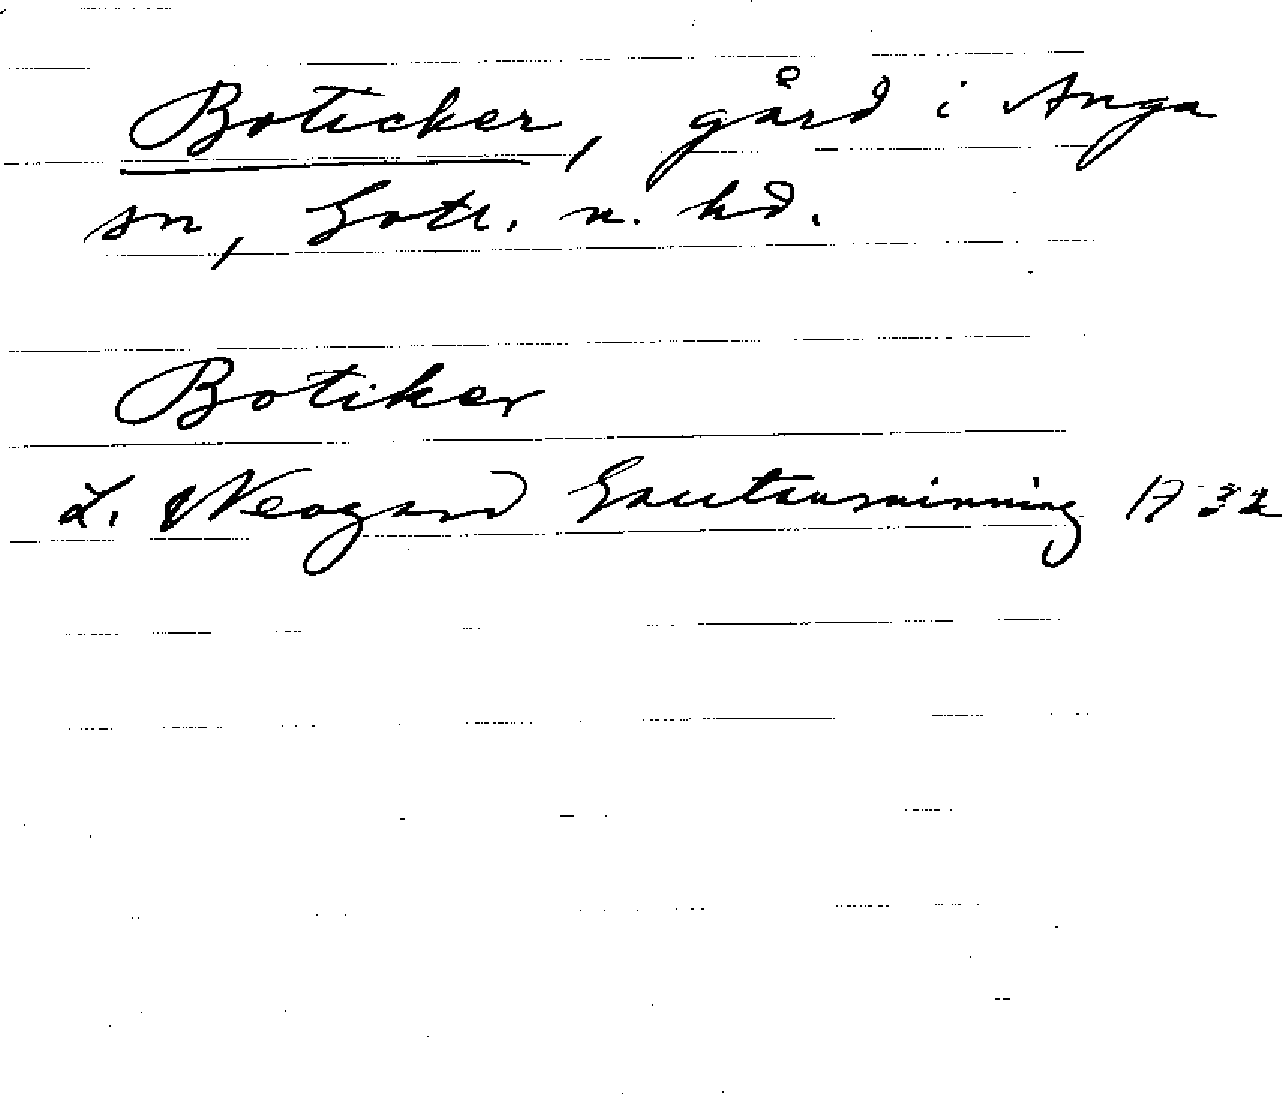 Boticker, gård i Anga
sn, Gotl. n. hd.
Botiker
L. Neogard Gautauminning 1732